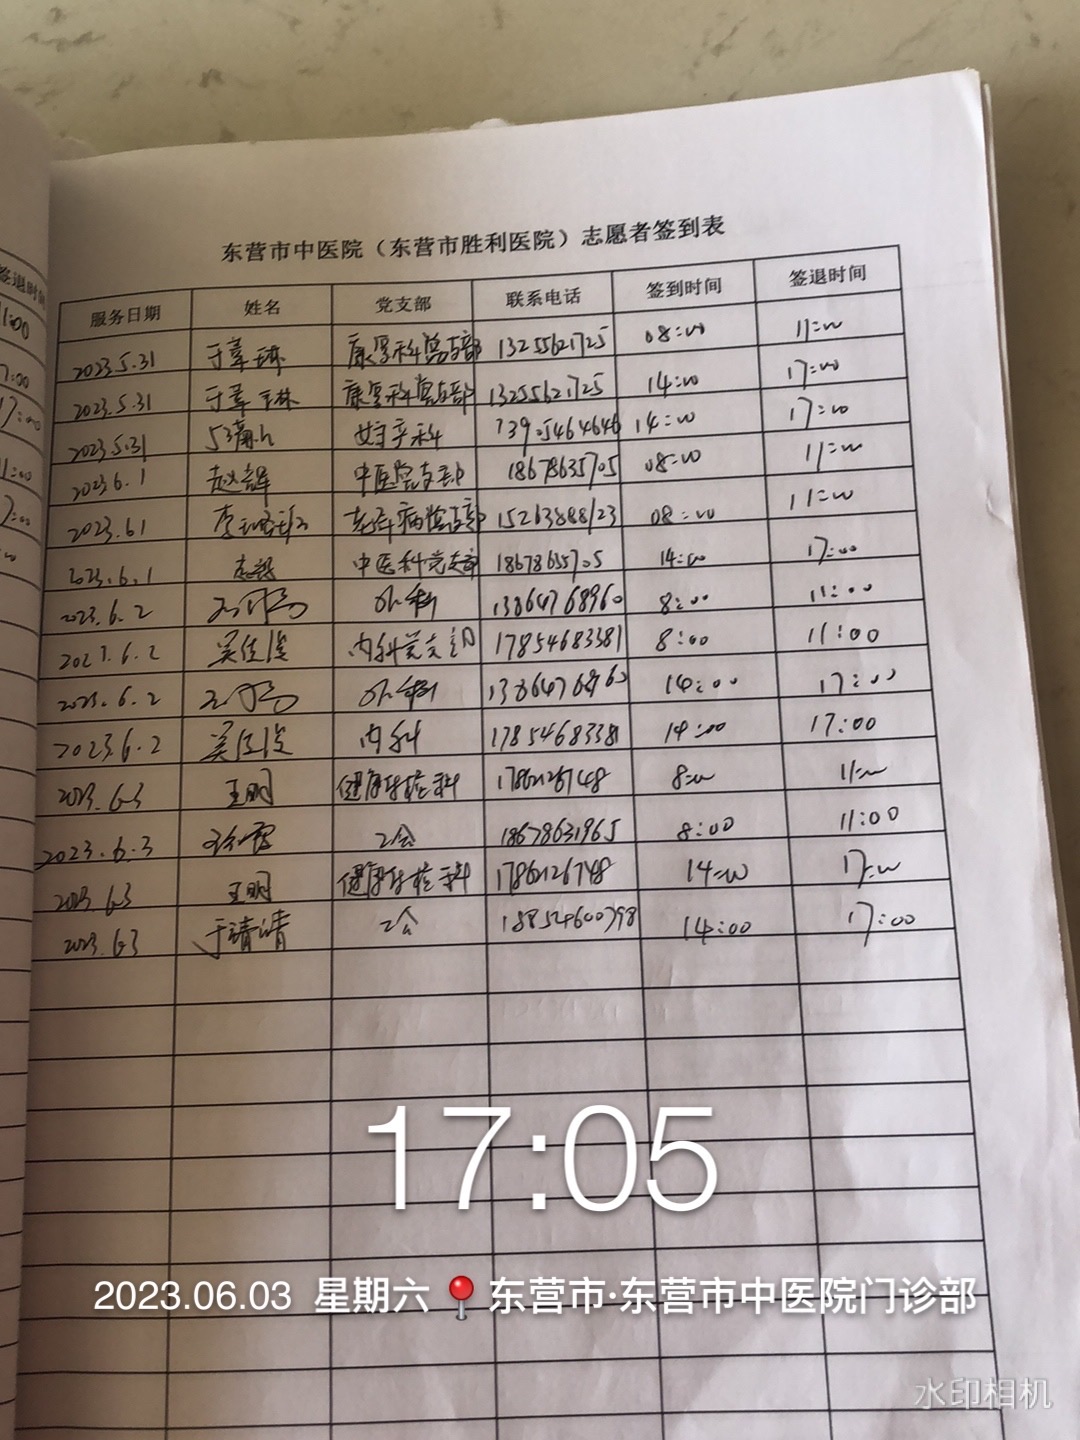 东营市中医院（东营市胜利医院）志愿者签到表
服务日期 姓名 党支部 联系电话 签到时间 签退时间
2023.5.31 于 琳 康复科党支部 13255621725 08:00 11:00
2023.5.31 于 琳 康复科党支部 13255621725 14:00 17:00
2023.5.31 科 13905464646 14:00 17:00
2023.6.1 赵辉 中医党支部 18678635705 08:00 11:00
2023.6.1 李 病党支部 15263888123 08:00 11:00
2023.6.1 中医科党支部 18678635705 14:00 17:00
2023.6.2 外科 13864768960 8:00 11:00
2023.6.2 吴佳俊 内科党支部 17854683381 8:00 11:00
2023.6.2 外科 13864768960 14:00 17:00
2023.6.2 吴佳俊 内科 17854683381 14:00 17:00
2023.6.3 王明 健康体检科 1786126748 8:00 11:00
2023.6.3 工会 18678631965 8:00 11:00
2023.6.3 王明 健康体检科 1786126748 14:00 17:00
2023.6.3 于清清 工会 15854600798 14:00 17:00
签退时间
11:00
17:00
17:00
11:00
17:00
17:05
2023.06.03 星期六 东营市·东营市中医院门诊部
水印相机